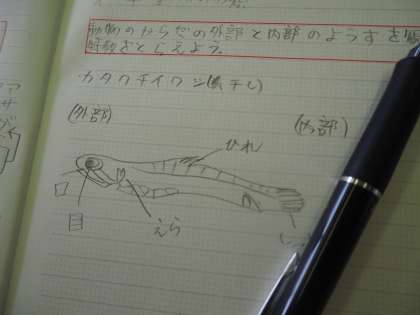 動物のからだの外部と内部のようすを
特徴をとらえよう。
カタクチイワシ(煮干し)
(外部)
(内部)
ひれ
口
目
えら